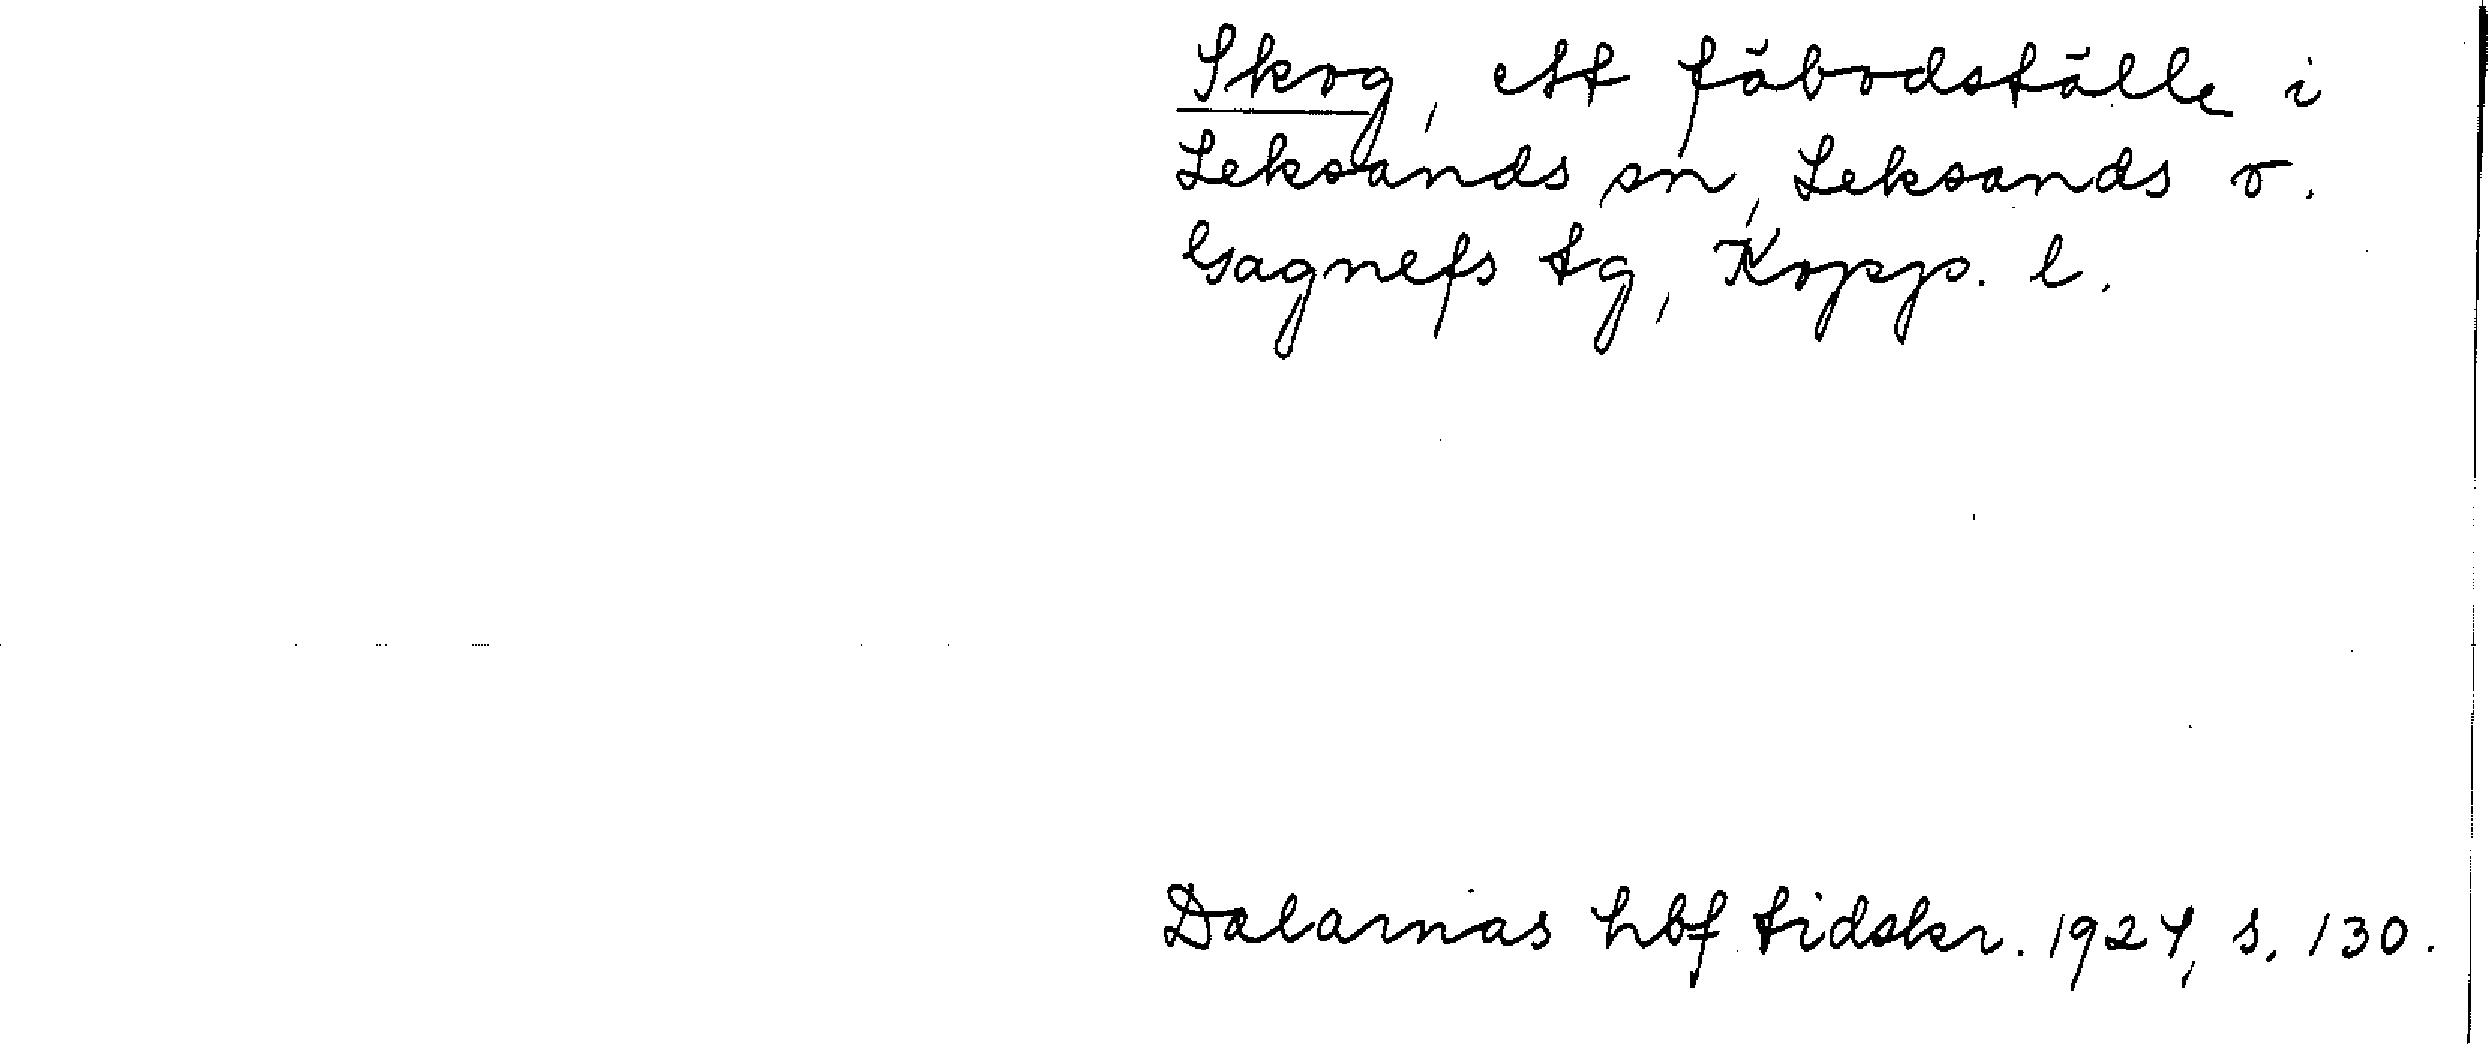 Skog, ett fäbodställe i
Leksands sn, Leksands o.
Gagnefs tg, Kopp. l.
Dalarnas hbf tidskr. 1924, s. 130.